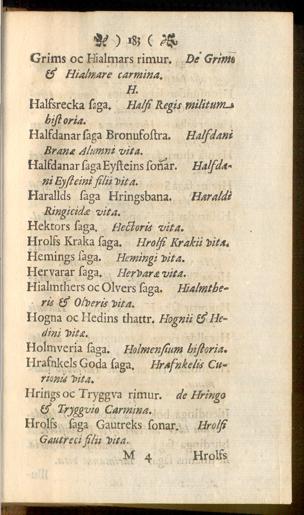 ) 183 (
Grims oc Hialmars rimur. De Grimo
& Hialmare carmina.
H.
Halfsrecka saga. Halfi Regis militum
historia.
Halfdanar saga Bronufostra. Halfdani
Branæ Alumni vita.
Halfdanar saga Eysteins soñar. Halfda-
ni Eysteini filii vita.
Harallds saga Hringsbana. Haraldi
Ringicidæ vita.
Hektors saga. Hectoris vita.
Hrolfs Kraka saga. Hrolfi Krakii vita.
Hemings saga. Hemingi vita.
Hervarar saga. Hervaræ vita.
Hialmthers oc Olvers saga. Hialmthe-
ris & Olveris vita.
Hogna oc Hedins thattr. Hognii & He-
dini vitæ.
Holmveria saga. Holmensium historia.
Hrafnkels Goda saga. Hrafnkelis Cu-
rionis vita.
Hrings oc Tryggva rimur. de Hringo
& Tryggvio Carmina.
Hrolfs saga Gautreks sonar. Hrolfi
Gautreci filii vita.
M 4 Hrolfs